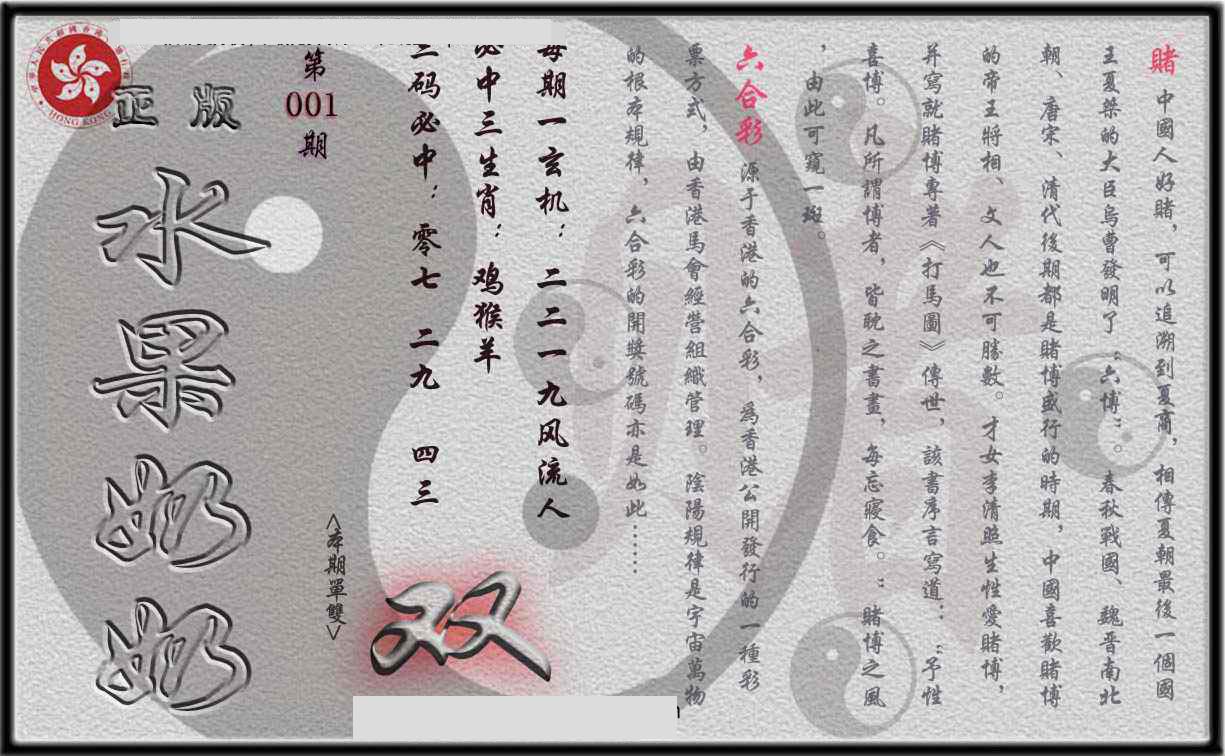 賭 中國人好賭，可以追溯到夏商，相傳夏朝最後一個國
王夏桀的大臣烏曹發明了“六博”。春秋戰國、魏晉南北
朝、唐宋、清代後期都是賭博盛行的時期，中國喜歡賭博
的帝王將相、文人也不可勝數。才女李清照生性愛賭博，
并寫就賭博專著《打馬圖》傳世，該書序言寫道：“予性
喜博。凡所謂博者，皆耽之書畫，每忘寢食。”賭博之風
，由此可窺一斑。
六合彩 源于香港的六合彩，為香港公開發行的一種彩
票方式，由香港馬會經營組織管理。陰陽規律是宇宙萬物
的根本規律，六合彩的開獎號碼亦是如此……
每期一玄机：二二一九风流人
必中三生肖：鸡猴羊
三码必中：零七 二九 四三
双
<本期單雙>
第
001
期
正版
水果奶奶
HONG KONG